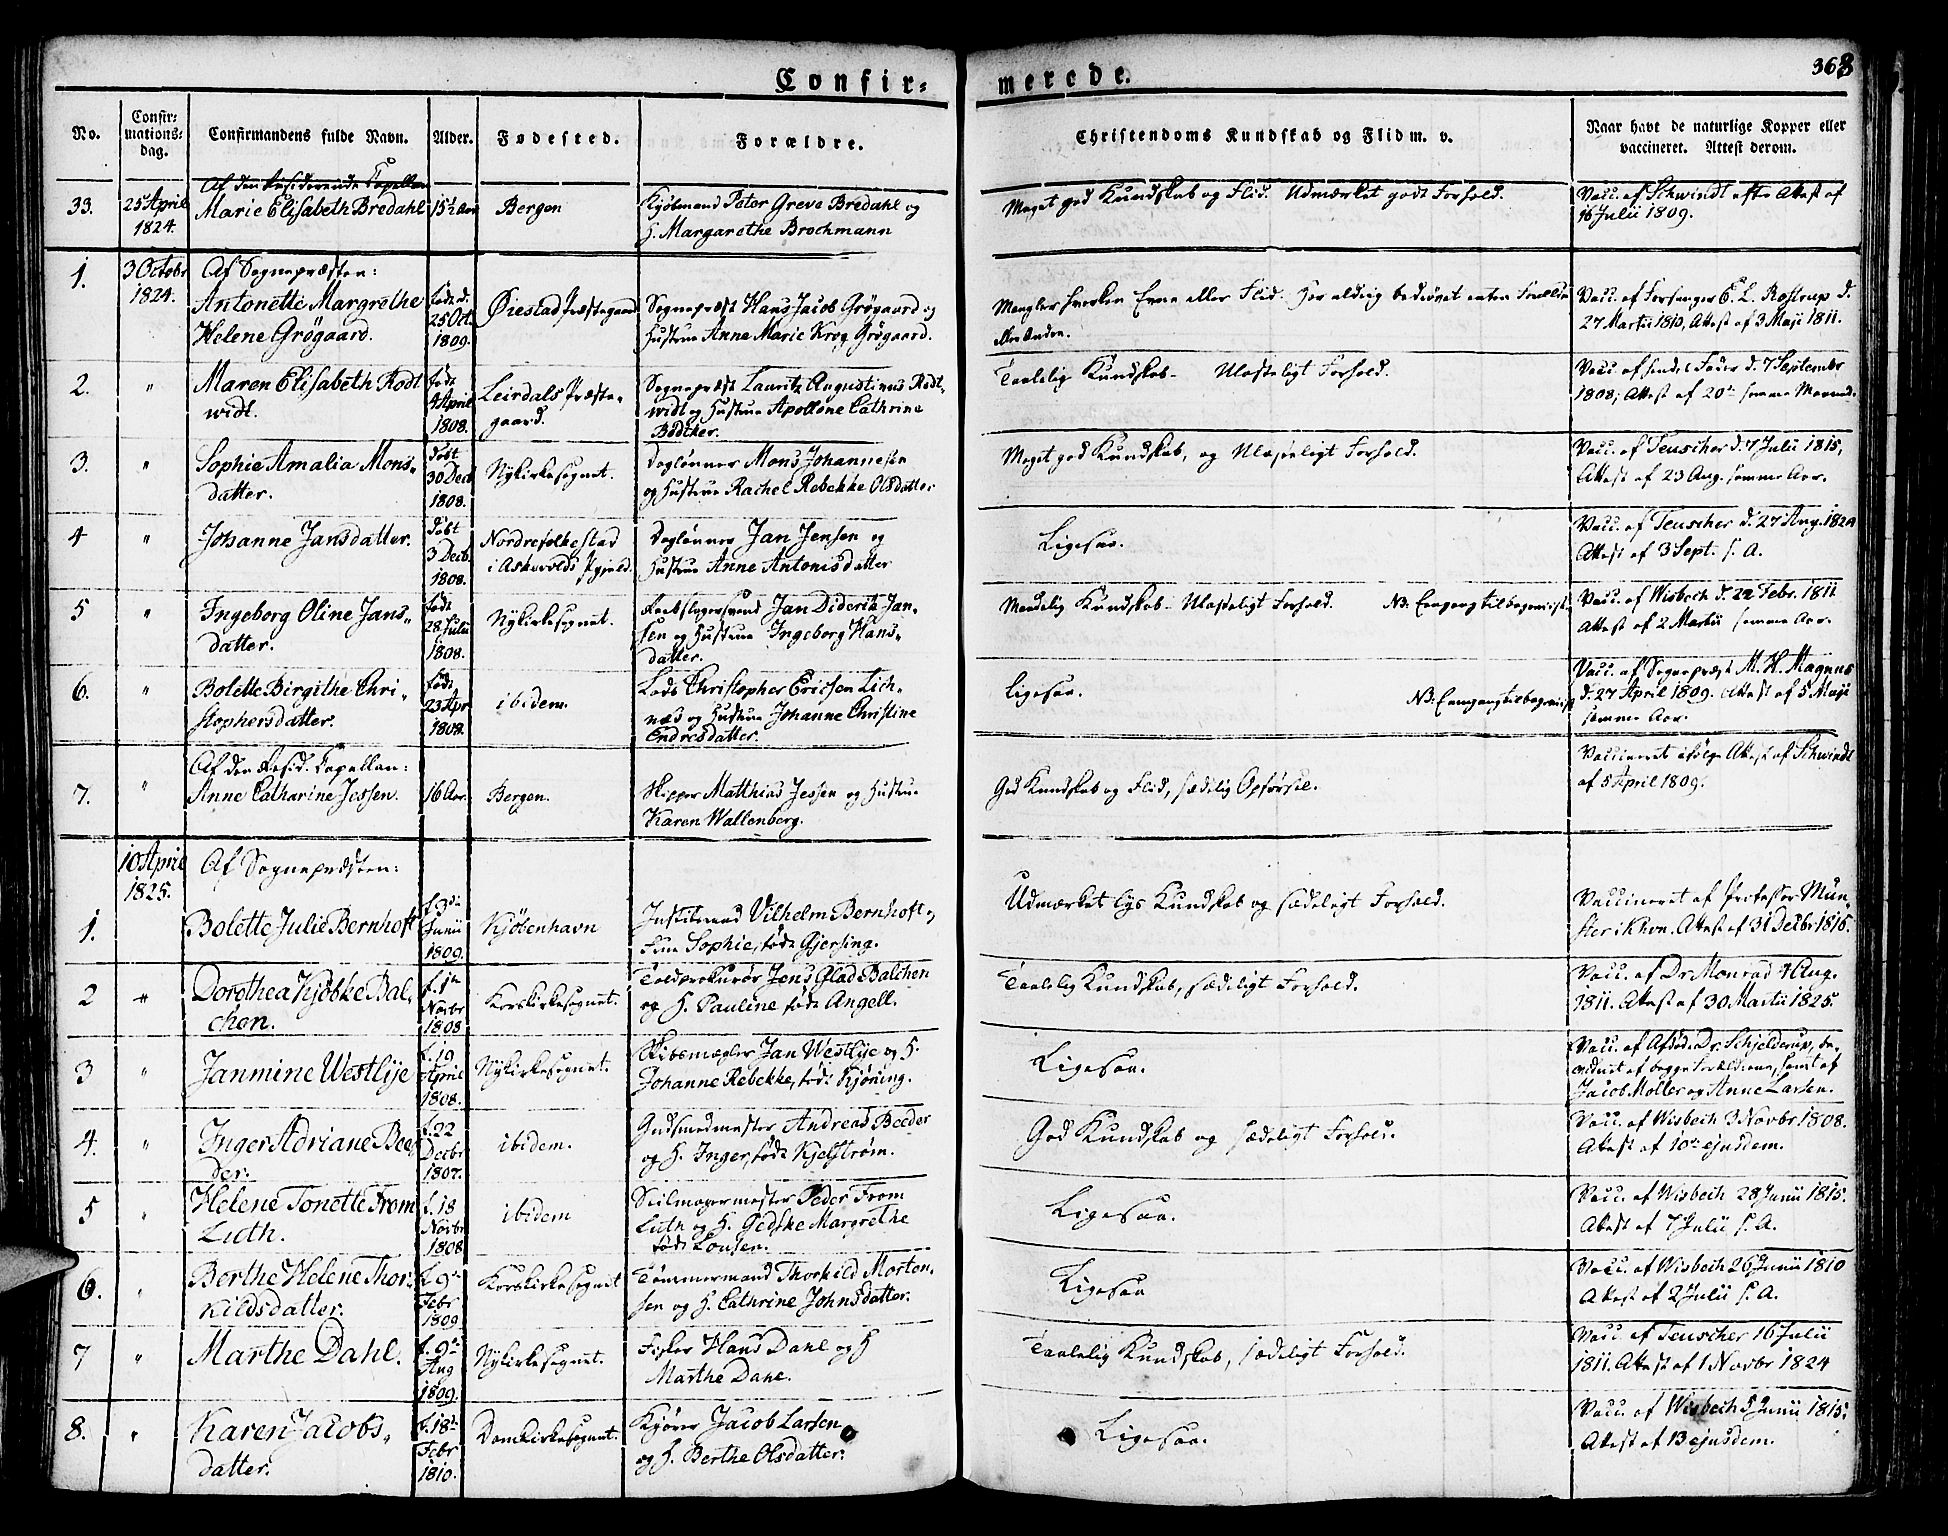 Confirmerede.
368
No.
Confirmationsdag.
Confirmandens fulde Navn.
Alder.
Fødested.
Forældre.
Christendoms Kundskab og Flid m. v.
Naar havt de naturlige Kopper eller vaccineret. Attest derom.
Af den residerende Capellan
33. 25 April 1824. Marie Elisabeth Bredahl 15½ Aar Bergen
Kjøbmand Peter Greve Bredahl og
H. Margarethe Brochmann
Meget god Kundskab og Flid. Udmærket godt Forhold.
Vacc. af Schwindt efter Attest af
16 Julii 1809.
1. 3 Octobr 1824. Af Sognepræsten:
Antonette Margrethe
Helene Grøgaard.
født d. 25 Oct. 1809.
Ørestad Præstegaard
Sognepræst Hans Jacob Grøgaard og
Hustrue Anne Marie Krog Grøgaard.
Mangler hverken Evne eller Flid. Har aldrig bedrøvet enten Forældre
Vacc. af Forsanger E. L. Rostrup d.
27 Martii 1810, Attest af 3 Maji 1811.
2. " Maren Elisabeth Rodt
widt.
født 4 April 1808.
Leirdals Præste-
gaard.
Sognepræst Lauritz Augustinus Rodt,
widt og Hustrue Apollone Cathrine
Bødtker.
Taalelig Kundskab - Ulasteligt Forhold.
Vacc. af hendes Fader d. 7 Septembr
1808, Attest af 20de samme Maaned.
3. " Sophie Amalia Mons,
datter.
født 30 Dec 1808.
Nykirkesognet.
Daglønner Mons Johannesen
og Hustrue Rachel Rebekke Olsdatter
Meget god Kundskab, og Ulasteligt Forhold.
Vacc. af Teuscher d. 7 Julii 1815,
Attest af 23 Aug. samme Aar.
4 " Johanne Jansdatter.
født 3 Decb. 1808.
Nordrefolkestad
i Askevolds Pgjeld.
Daglønner Jan Jensen og
Hustrue Anne Antonisdatter
Ligesaa.
Vacc. af Teuscher d. 27 Aug. 1824
Attest af 3 Sept. s. A.
5 " Ingeborg Oline Jans,
datter.
født 28 Julii 1808.
Nykirkesognet.
Reebslagersvend Jan Diderik Jan,
sen og Hustrue Ingeborg Hans,
datter.
Maadelig Kundskab - Ulasteligt Forhold. NB. Eengang tilbageviist
Vacc. af Wisbech d. 22 Febr. 1811
Attest af 2 Martii samme Aar.
6. " Bolette Birgithe Chri,
stophersdatter.
født 23 Apr 1808.
ibidem.
Lods Christopher Ericsen Lich,
næs og Hustrue Johanne Christine
Endresdatter.
Ligesaa. NB. Eengang tilbageviist
Vacc. af Sognepræst M. H. Magnus
d. 27 April 1809. Attest af 5 Maji
samme Aar.
Af den Resid. Capellan:
7. " Anne Catharine Jessen. 16 Aar. Bergen.
Skipper Matthias Jessen og Hustrue
Karen Wallenberg.
God Kundskab og Flid, sædelig Opførsel.
Vaccineret ifølge Attest af Schwindt
af 5 April 1809.
10 April 1825. Af Sognepræsten:
1. Bolette Julie Bernhoft
f. 3de Junii 1809.
Kjøbenhavn
Justitsraad Vilhelm Bernhoft og
Frue Sophie, født Gjersing.
Udmærket lys Kundskab og sædeligt Forhold.
Vaccineret af Professor Mün,
ster i Khvn. Attest af 31 Decbr 1815.
2 " Dorothea Kjøbke Bal,
chen.
f. 1te Novbr 1808
Korskirkesognet.
Toldprokurør Jens Glad Balchen
og H. Pauline født Angell.
Taalelig Kundskab, sædeligt Forhold.
Vacc. af Dr. Monrad 4 Aug.
1811. Attest af 30 Martii 1825.
3 " Janmine Westlije
f. 19 April 1808.
Nykirkesognet.
Skibsmægler Jan Westlije og H.
Johanne Rebekke, født Kjøning.
Ligesaa.
Vacc. af Afdøde Dr. Schjelderup, be,
vidnet af begge Forældrene, samt af
Jacob Møller og Anne Larsen.
4. " Inger Adriane Bee,
der.
f. 22 Decbr 1807.
ibidem.
Guldsmedmester Andreas Beeder
og H. Inger, født Kjelstrøm.
God Kundskab og sædeligt Forhold.
Vacc. af Wisbech 3 Novbr 1808.
Attest af 10de ejusdem.
5 " Helene Tonette From
Luth.
f. 18 Novbr 1808
ibidem
Seilmagermester Peder From
Luth og H. Gedske Margrethe
født Lousen.
Ligesaa.
Vacc. af Wisbech 28 Junii 1815.
Attest af 7 Julii s. A.
6. " Berthe Helene Thor,
kildsdatter.
f. 9de Febr 1809
Korskirkesognet
Tømmermand Thorkild Morten,
sen og H. Cathrine Johnsdatter.
Ligesaa
Vacc. af Wisbech 26 Junii 1810
Attest af 2 Julii s. A.
7 " Marthe Dahl.
f. 9de Aug 1809.
Nykirkesognet.
Fisker Hans Dahl og H
Marthe Dahl.
Taalelig Kundskab, sædeligt Forhold.
Vacc. af Teuscher 16 Julii
1811. Attest af 1 Novbr 1824
8. " Karen Jacobs,
datter.
f. 18de Febr 1810.
Domkirkesognet.
Kjører Jacob Larsen
og H. Berthe Olsdatter.
Ligesaa.
Vacc. af Wisbech 5 Junii 1815.
Attest af 13 ejusdem.